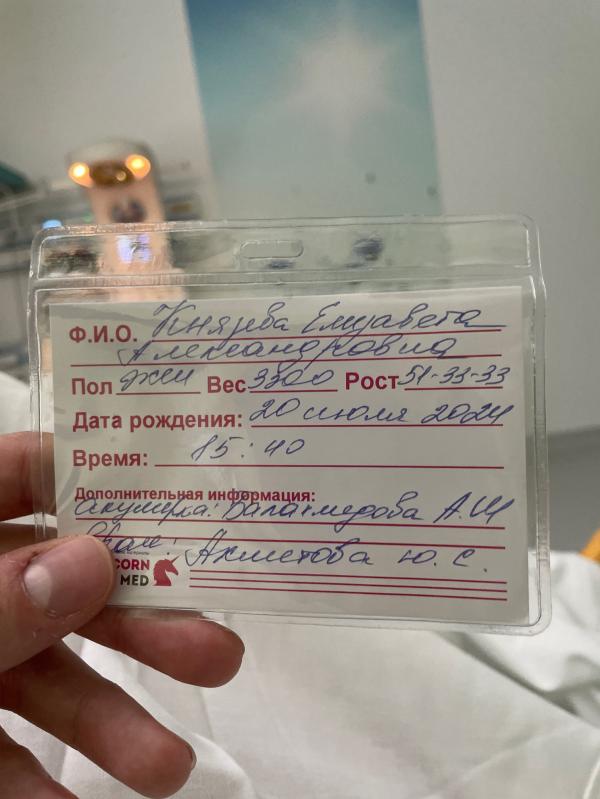 Ф.И.О. Князева Елизавета
Александровна
Пол жен Вес 3300 Рост 51-33-33
Дата рождения: 20 июля 2024
Время: 15:40
Дополнительная информация:
Акушерка: Балахмедова А.Ш
Ахметова Ю.С.
CORN
MED